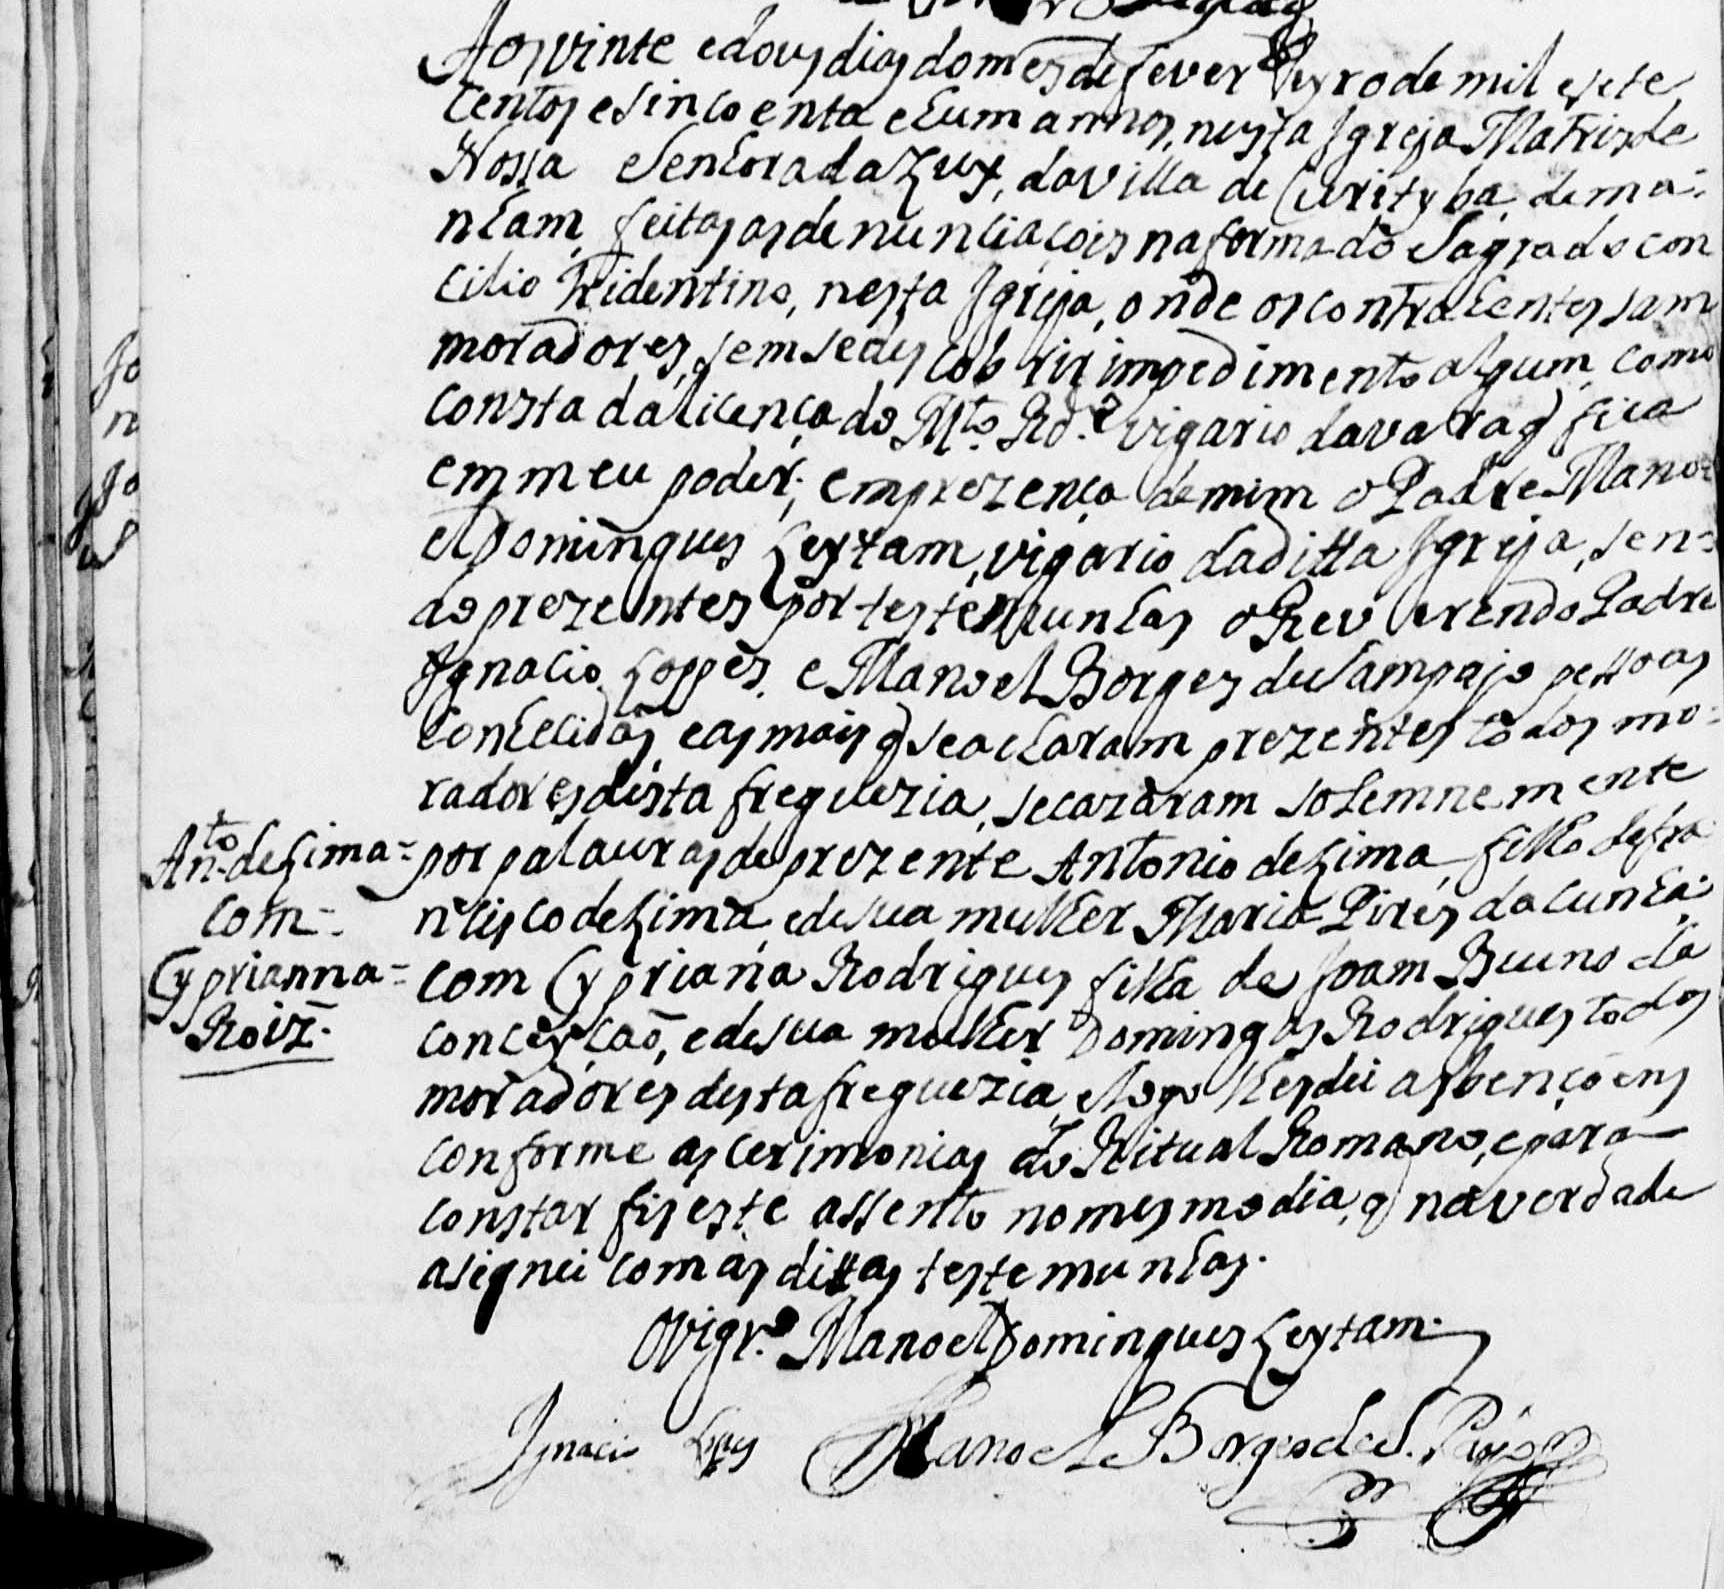 Aos vinte e dous dias do mes de fever eyro de mil e sete
centos e sincoenta e hum annos, nesta Igreja Matris de
Nossa Senhora da Lux, da villa de Curityba, de ma-
nham, feitas as denunciaçois na forma do Sagrado con
cilio Tridentino, nesta Igreja, onde os contrahentes sam
moradores, sem se des cobrir impedimento algum, como
consta da licença do M.to Rd.o vigario da vara q fica
em meu poder; em prezença de mim o Padre Mano-
el Domingues Leytam, vigario da ditta Igreja, sen-
do prezentes por testemunhas o Reverendo Padre
Ignacio Loppes, e Manoel Borges de Sampajo pessoas
conhecidas, e as mais q se acharam prezentes todos mo-
radores desta freguezia, se cazaram solemnemente
por palauras de prezente Antonio de Lima, filho de fra-
ncisco de Lima, e de sua mulher Maria Pires da cunha:
com Cypriana Rodrigues filha de Joam Bueno da
conceyçaõ, e de sua mulher Domingas Rodrigues todos
moradores desta freguezia, e logo lhes dei as bençoens
conforme as cerimonias do Ritual Romano, e para
constar fis este assento no mesmo dia, q na verdade
asignei com as dittas testemunhas.
An.to de Lima-
com-
Cyprianna-
Roiz.
O Vigr.o Manoel Domingues Leytam.
Ignacio Lopes Manoel Borges de S. Payo